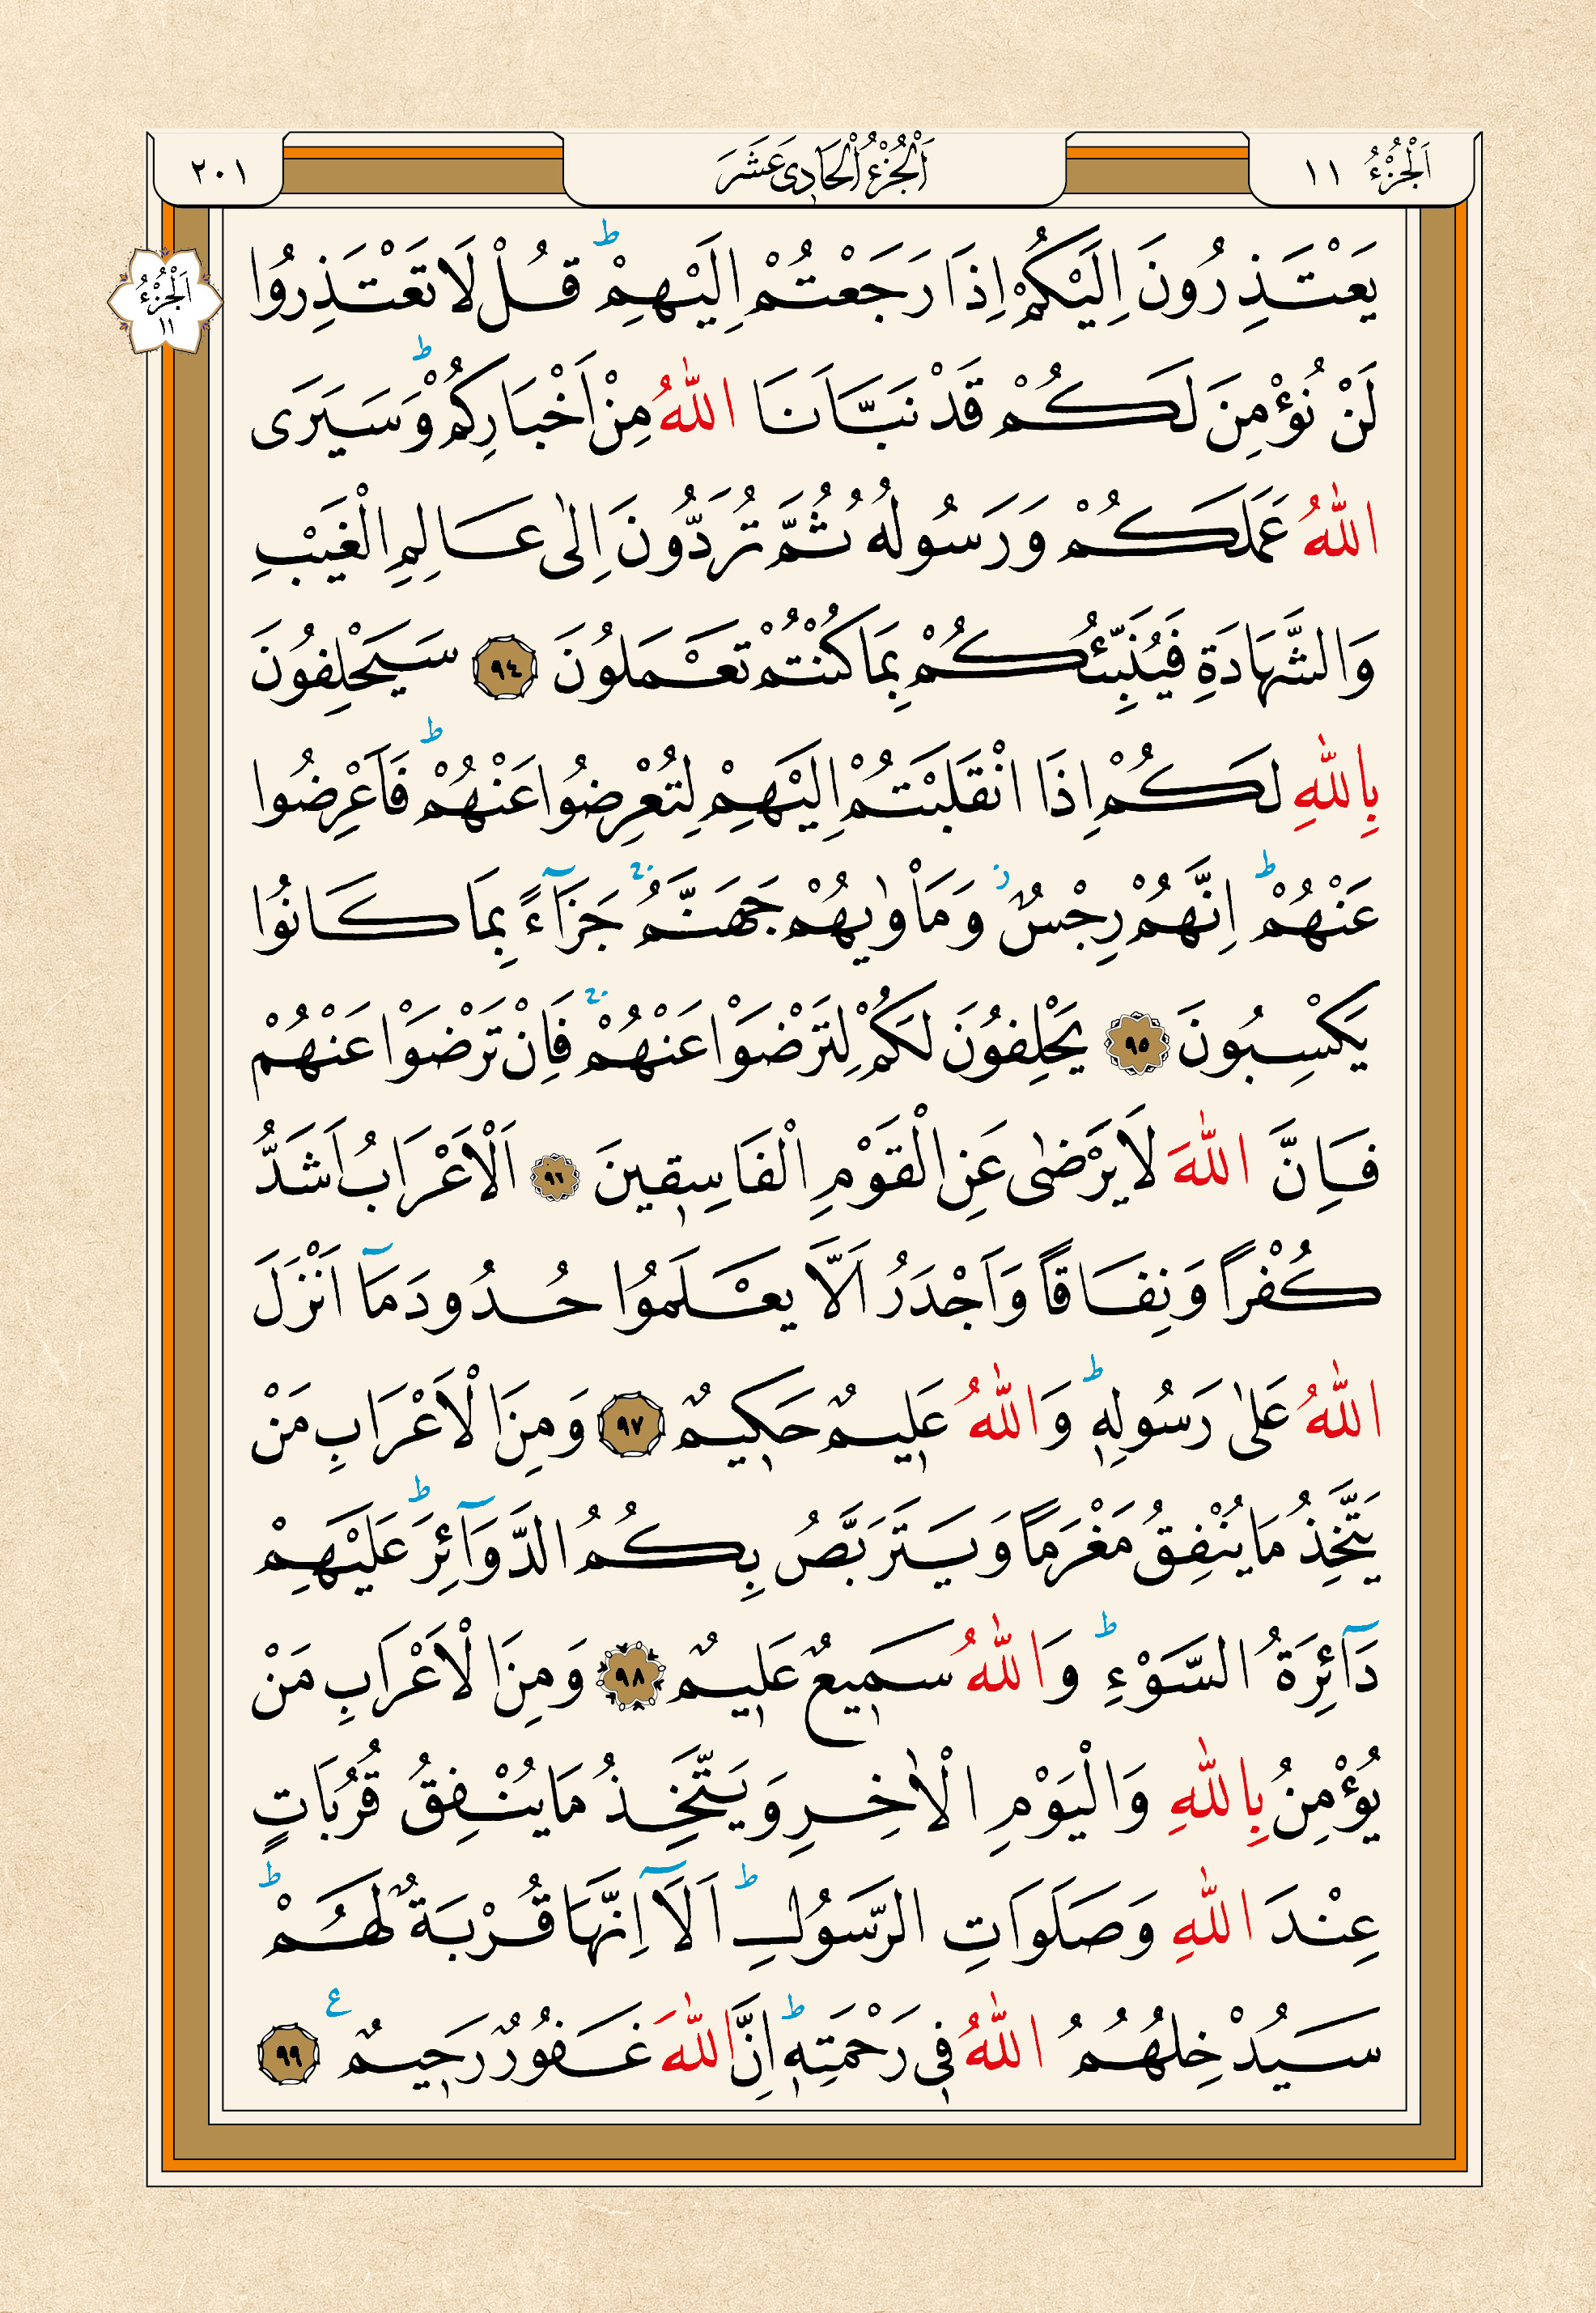 اَلْجُزْءُ ١١
اَلْجُزْءُ الْحَادِىَ عَشَرَ
٢٠١
اَلْجُزْءُ
١١
يَعْتَذِرُونَ اِلَيْكُمْ اِذَا رَجَعْتُمْ اِلَيْهِمْۜ قُلْ لَا تَعْتَذِرُوا
لَنْ نُؤْمِنَ لَكُمْ قَدْ نَبَّاَنَا اللّٰهُ مِنْ اَخْبَارِكُمْۜ وَسَيَرَى
اللّٰهُ عَمَلَكُمْ وَرَسُولُهُ ثُمَّ تُرَدُّونَ اِلٰى عَالِمِ الْغَيْبِ
وَالشَّهَادَةِ فَيُنَبِّئُكُمْ بِمَا كُنْتُمْ تَعْمَلُونَ ﴿٩٤﴾ سَيَحْلِفُونَ
بِاللّٰهِ لَكُمْ اِذَا انْقَلَبْتُمْ اِلَيْهِمْ لِتُعْرِضُوا عَنْهُمْۜ فَاَعْرِضُوا
عَنْهُمْۜ اِنَّهُمْ رِجْسٌۘ وَمَاْوٰيهُمْ جَهَنَّمُۚ جَزَٓاءً بِمَا كَانُوا
يَكْسِبُونَ ﴿٩٥﴾ يَحْلِفُونَ لَكُمْ لِتَرْضَوْا عَنْهُمْۚ فَاِنْ تَرْضَوْا عَنْهُمْ
فَاِنَّ اللّٰهَ لَا يَرْضٰى عَنِ الْقَوْمِ الْفَاسِقٖينَ ﴿٩٦﴾ اَلْاَعْرَابُ اَشَدُّ
كُفْراً وَنِفَاقاً وَاَجْدَرُ اَلَّا يَعْلَمُوا حُدُودَ مَٓا اَنْزَلَ
اللّٰهُ عَلٰى رَسُولِهٖۜ وَاللّٰهُ عَلٖيمٌ حَكٖيمٌ ﴿٩٧﴾ وَمِنَ الْاَعْرَابِ مَنْ
يَتَّخِذُ مَا يُنْفِقُ مَغْرَماً وَيَتَرَبَّصُ بِكُمُ الدَّوَٓائِرَۜ عَلَيْهِمْ
دَٓائِرَةُ السَّوْءِۜ وَاللّٰهُ سَمٖيعٌ عَلٖيمٌ ﴿٩٨﴾ وَمِنَ الْاَعْرَابِ مَنْ
يُؤْمِنُ بِاللّٰهِ وَالْيَوْمِ الْاٰخِرِ وَيَتَّخِذُ مَا يُنْفِقُ قُرُبَاتٍ
عِنْدَ اللّٰهِ وَصَلَوَاتِ الرَّسُولِۜ اَلَٓا اِنَّهَا قُرْبَةٌ لَهُمْۜ
سَيُدْخِلُهُمُ اللّٰهُ فٖى رَحْمَتِهٖۜ اِنَّ اللّٰهَ غَفُورٌ رَحٖيمٌࣖ ﴿٩٩﴾